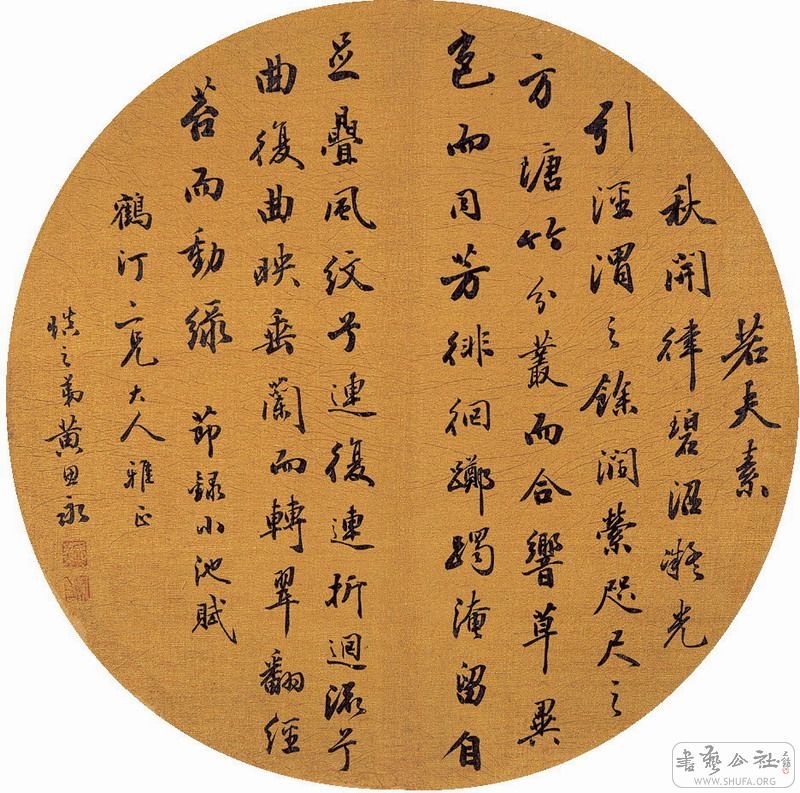 若夫素
秋開律碧沼凝光
引涇渭之餘潤縈咫尺之
方塘竹分叢而合響草異
色而同芳徘徊躑躅淹留自
足疊風紋兮連復連折迴流兮
曲復曲映垂蘭而轉翠翻經
苔而動緑 節録小池賦
鶴汀二兄大人雅正
慎之弟黃思永
書藝公社
WWW.SHUFA.ORG